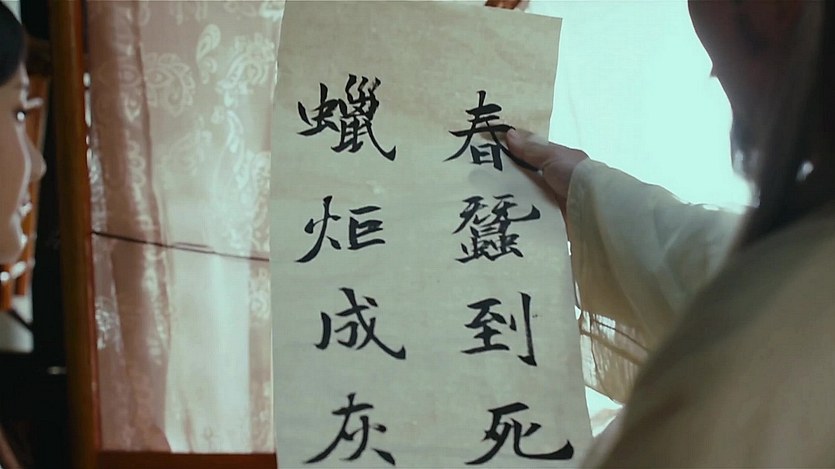 春蠶到死
蠟炬成灰